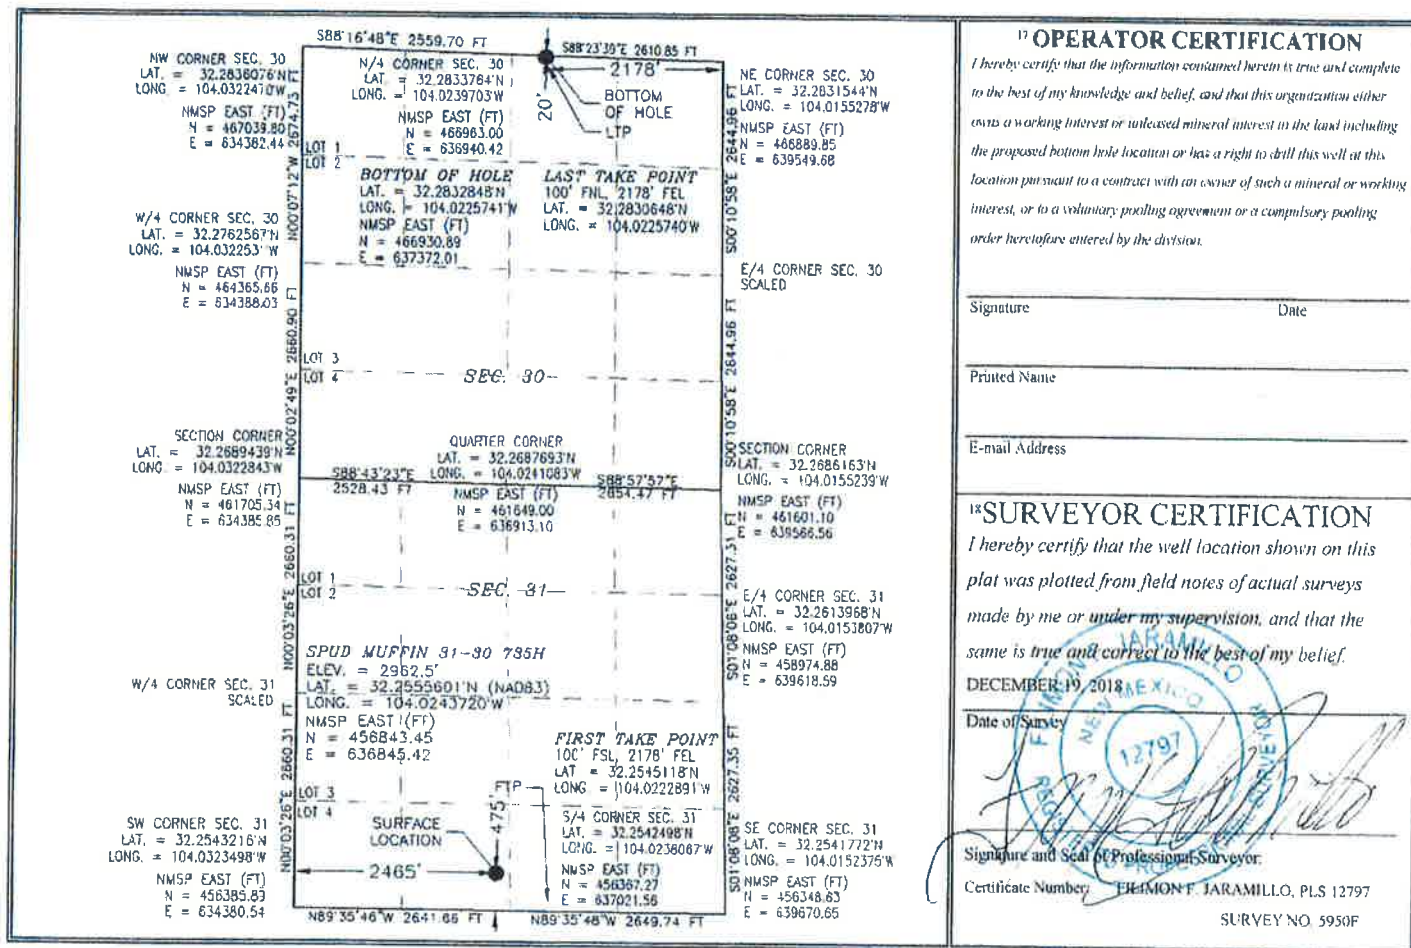 S88°16'48"E 2559.70 FT
S88°23'39"E 2610.85 FT
NW CORNER SEC. 30
LAT. = 32.2836076'N
LONG. = 104.0322470'W
NMSP EAST (FT)
N = 467039.80
E = 634382.44
N/4 CORNER SEC. 30
LAT. = 32.2833764'N
LONG. = 104.0239703'W
NMSP EAST (FT)
N = 466963.00
E = 636940.42
20'
2178'
BOTTOM
OF HOLE
LTP
NE CORNER SEC. 30
LAT. = 32.2831544'N
LONG. = 104.0155278'W
NMSP EAST (FT)
N = 466889.85
E = 639549.68
N00°07'12"W 2674.73 FT
LOT 1
LOT 2
BOTTOM OF HOLE
LAT. = 32.2832848'N
LONG. = 104.0225741'W
NMSP EAST (FT)
N = 466930.89
E = 637372.01
LAST TAKE POINT
100' FNL, 2178' FEL
LAT. = 32.2830648'N
LONG. = 104.0225740'W
S00°10'58"E 2644.96 FT
W/4 CORNER SEC. 30
LAT. = 32.2762567'N
LONG. = 104.032253 'W
NMSP EAST (FT)
N = 464365.66
E = 634388.03
E/4 CORNER SEC. 30
SCALED
N00°02'49"E 2660.90 FT
LOT 3
LOT 4
SEC. 30
S00°10'58"E 2644.96 FT
SECTION CORNER
LAT. = 32.2689439'N
LONG. = 104.0322843'W
NMSP EAST (FT)
N = 461705.34
E = 634385.85
QUARTER CORNER
LAT. = 32.2687693'N
LONG. = 104.0241083'W
NMSP EAST (FT)
N = 461649.00
E = 636913.10
S88°43'23"E
2528.43 FT
S88°57'57"E
2654.47 FT
SECTION CORNER
LAT. = 32.2686163'N
LONG. = 104.0155239'W
NMSP EAST (FT)
N = 461601.10
E = 639566.56
N00°03'26"E 2660.31 FT
LOT 1
LOT 2
SEC. 31
S01°08'08"E 2627.31 FT
E/4 CORNER SEC. 31
LAT. = 32.2613968'N
LONG. = 104.0153807'W
NMSP EAST (FT)
N = 458974.88
E = 639618.59
W/4 CORNER SEC. 31
SCALED
SPUD MUFFIN 31-30 735H
ELEV. = 2962.5'
LAT. = 32.2555601'N (NAD83)
LONG. = 104.0243720'W
NMSP EAST (FT)
N = 456843.45
E = 636845.42
FIRST TAKE POINT
100' FSL, 2178' FEL
LAT = 32.2545118'N
LONG. = 104.0222891'W
FTP
N00°03'26"E 2660.31 FT
LOT 3
LOT 4
S01°08'08"E 2627.35 FT
SW CORNER SEC. 31
LAT. = 32.2543216'N
LONG. = 104.0323498'W
NMSP EAST (FT)
N = 456385.83
E = 634380.54
SURFACE
LOCATION
475'
2465'
S/4 CORNER SEC. 31
LAT. = 32.2542498'N
LONG. = 104.0238067'W
NMSP EAST (FT)
N = 456367.27
E = 637021.56
SE CORNER SEC. 31
LAT. = 32.2541772'N
LONG. = 104.0152375'W
NMSP EAST (FT)
N = 456348.63
E = 639670.65
N89°35'46"W 2641.66 FT
N89°35'48"W 2649.74 FT
17 OPERATOR CERTIFICATION
I hereby certify that the information contained herein is true and complete
to the best of my knowledge and belief, and that this organization either
owns a working interest or unleased mineral interest in the land including
the proposed bottom hole location or has a right to drill this well at this
location pursuant to a contract with an owner of such a mineral or working
interest, or to a voluntary pooling agreement or a compulsory pooling
order heretofore entered by the division.
Signature Date
Printed Name
E-mail Address
18 SURVEYOR CERTIFICATION
I hereby certify that the well location shown on this
plat was plotted from field notes of actual surveys
made by me or under my supervision, and that the
same is true and correct to the best of my belief.
DECEMBER 19, 2018
Date of Survey
FILIMON F. JARAMILLO
NEW MEXICO
12797
SURVEYOR
Signature and Seal of Professional Surveyor:
Certificate Number: FILIMON F. JARAMILLO, PLS 12797
SURVEY NO. 5950F